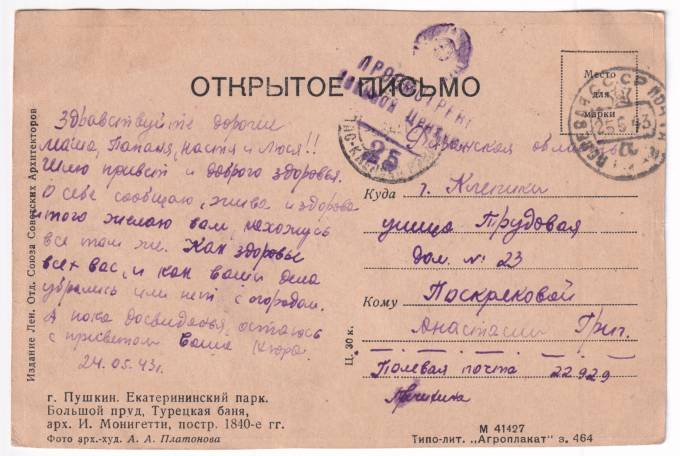 ОТКРЫТОЕ ПИСЬМО
Место
для
марки
ПРОСМОТРЕНО
ВОЕННОЙ ЦЕНЗУРОЙ
25
СССР
25 6 43
Здравствуйте дорогие
Маша, Папаня, Настя и Люся!!
Шлю привет и доброго здоровья.
О себе сообщаю, жива и здорова
того желаю вам, нахожусь
все там же. Как здоровье
всех вас, и как ваши дела
убрались или нет с огородам.
А пока досвиданья, остаюсь
с приветом Ваша
24.05.43г.
Рязанская область
Куда г. Клепики
улица Трудовая
дом. № 23
Кому Поскрековой
Анастасии Григ.
Полевая почта 22929
Издание Лен. Отд. Союза Советских Архитекторов
Ц. 30 к.
г. Пушкин. Екатерининский парк.
Большой пруд, Турецкая баня,
арх. И. Монигетти, постр. 1840-е гг.
Фото арх.-худ. А. А. Платонова
М 41427
Типо-лит. „Агроплакат" з. 464